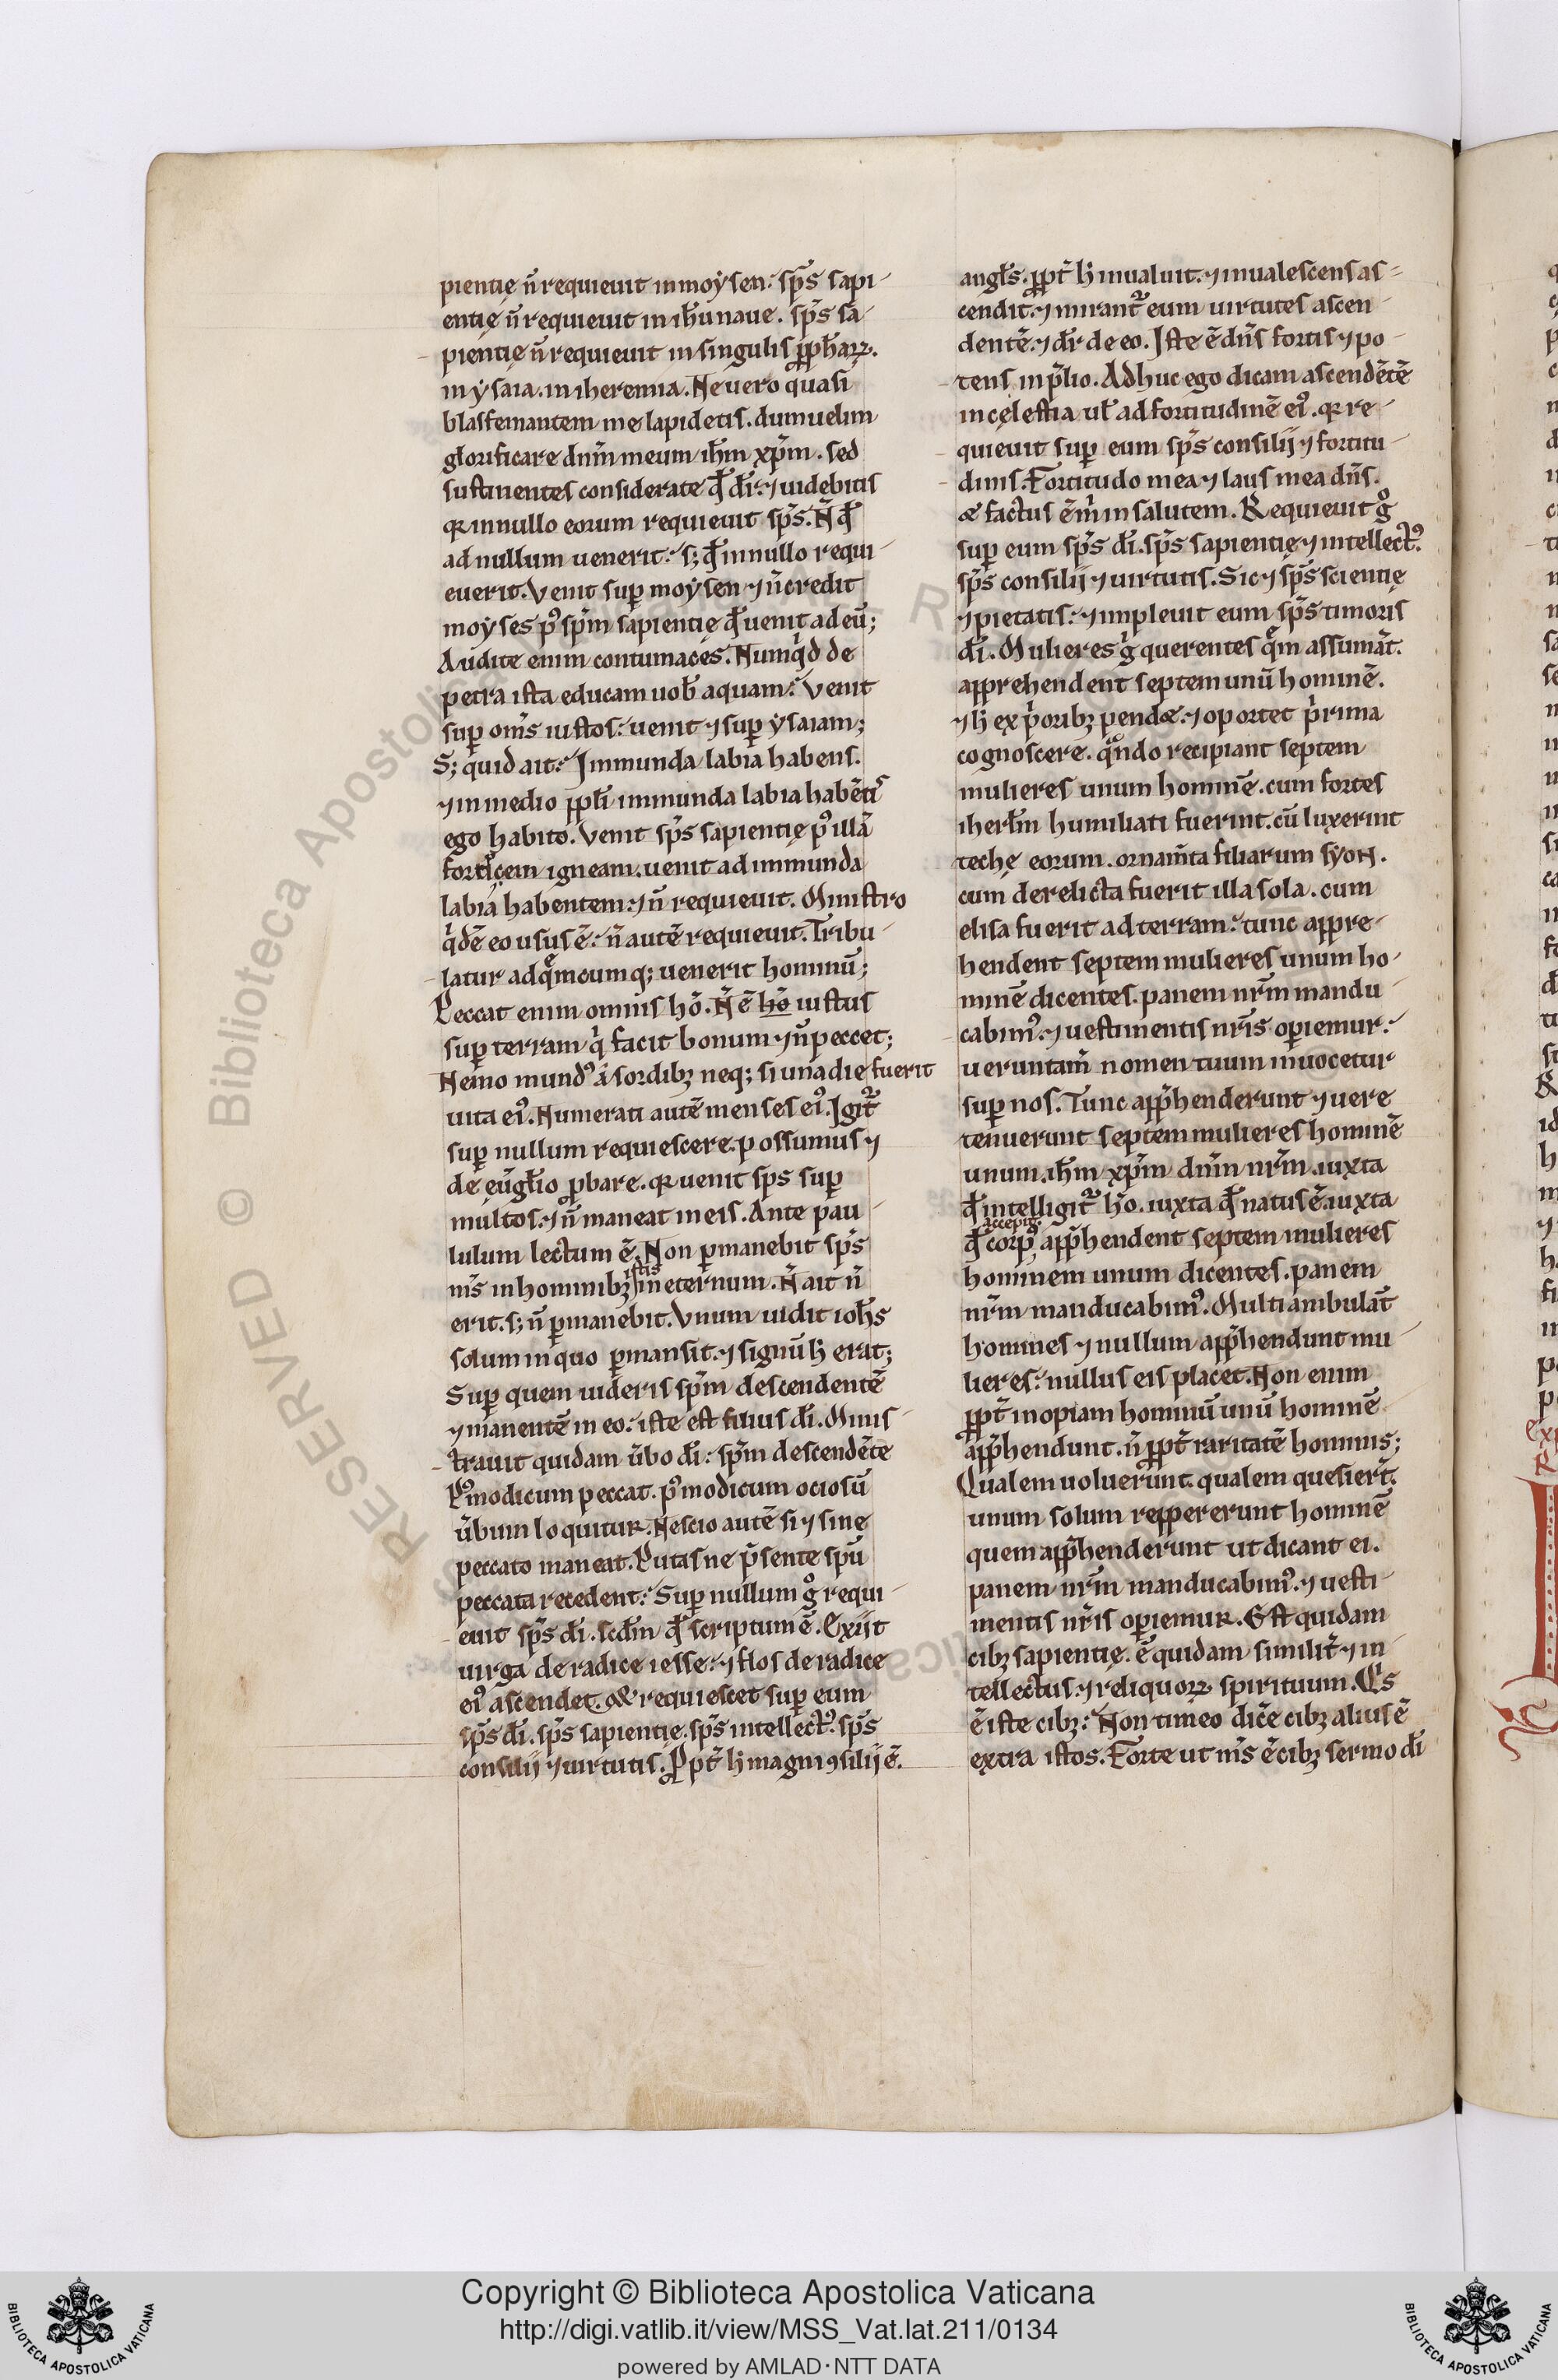 pientię n̄ requieuit in moẏsen: sp̄s sapi-
entię n̄ requieuit in ih̄u naue. sp̄s sa-
pientię n̄ requieuit in singulis ꝓph̄aꝝ.
in ẏsaia. in iheremia. Ne uero quasi
blasfemantem me lapidetis. dum uelim
glorificare dn̄m meum ih̄m xp̄m. sed
sustinentes considerate qđ dr̄. ⁊ uidebitis
qr in nullo eorum requieuit sp̄s. N̄ qđ
ad nullum uenerit: s; qđ in nullo requi-
euerit. Venit suꝑ moẏsen ⁊ n̄ credit
moẏses pꝰ sp̄m sapientię qđ uenit ad eū;
Audite enim contumaces. Numqͥd de
petra ista educam uob̄ aquam: Venit
suꝑ om̄s iustos: uenit ⁊ suꝑ ẏsaiam;
S; quid ait: Immunda labia habens.
⁊ in medio ꝓpl̄i immunda labia habētis
ego habito. Venit sp̄s sapientię pꝰ illā
forcicem igneam. uenit ad immunda
labia habentem: ⁊ n̄ requieuit. Ministro
qͥdē eo usus ē: n̄ autē requieuit. Tribu-
latur ad quēmcumq; uenerit hominū;
Peccat enim omnis hō. N̄ ē hō iustus
suꝑ terram qͥ facit bonum ⁊ n̄ peccet;
Nemo mundꝰ a sordibꝫ neq; si una die fuerit
uita eiꝰ. Numerati autē menses eiꝰ. Igit̄
suꝑ nullum requiescere. possumus ⁊
de eūgl̄io ꝓbare. qr uenit sp̄s suꝑ
multos. ⁊ n̄ maneat in eis. Ante pau-
lulum lectum ē. Non ꝑmanebit sp̄s
istis
m̄s in hominibꝫ in eternum. N̄ ait n̄
erit. s; n̄ ꝑmanebit. Vnum uidit ioh̄s
solum in quo ꝑmansit. ⁊ signū h̄ erat;
Suꝑ quem uideris sp̄m descendentē
⁊ manentē in eo: iste est filius dī. Minis-
trauit quidam ūbo dī: sp̄m descendēte
Pꝰ modicum peccat. pꝰ modicum ociosū
ūbum loquitur. Nescio autē si ⁊ sine
peccato maneat. Putasne p̄sente spū
peccata recedent: Suꝑ nullum gͦ requi-
euit sp̄s dī. scđm qđ scriptum ē. Exiit
uirga de radice iesse: ⁊ flos de radice
eiꝰ ascendet. & requiescet suꝑ eum
sp̄s dī. sp̄s sapientię. sp̄s intellectꝰ. sp̄s
consilii ⁊ uirtutis. Ppt̄ h̄ magni ꝯsilii ē.
angl̄s. ꝓpt̄ h̄ inualuit. ⁊ inualescens as-
cendit. ⁊ mirant̄ eum uirtutes ascen-
dentē. ⁊ dr̄ de eo. Iste ē dn̄s fortis ⁊ po-
tens in p̄lio. Adhuc ego dicam ascendētē
in cęlestia ul̄ ad fortitudinē eiꝰ. qr re-
quieuit suꝑ eum sp̄s consilii ⁊ fortitu-
dinis. Fortitudo mea ⁊ laus mea dn̄s.
& factus ē m̄ in salutem. Requieuit gͦ
suꝑ eum sp̄s dī. sp̄s sapientię ⁊ intellectꝰ.
sp̄s consilii ⁊ uirtutis. Sic ⁊ sp̄s scientię
⁊ pietatis: ⁊ impleuit eum sp̄s timoris
dī. Mulieres gͥ querentes quē assumāt.
apprehendent septem unū hominē.
⁊ h̄ ex pͥoribꝫ pend&. ⁊ oportet pͥ rima
cognoscere. qͦndo recipiant septem
mulieres unum hominē. cum fortes
iherl̄m humiliati fuerint. cū luxerint
techę eorum. ornam̄ta filiarum sẏoN.
cum derelicta fuerit illa sola. cum
elisa fuerit ad terram: tunc appre-
hendent septem mulieres unum ho-
minē dicentes. panem nr̄m mandu-
cabimꝰ. ⁊ uestimentis nr̄is operiemur:
ueruntam̄ nomen tuum inuocetur
suꝑ nos. Tunc appͤhenderunt ⁊ uere
tenuerunt septem mulieres hominē
unum. ih̄m xp̄m dn̄m nr̄m. iuxta
qđ intelligit̄ hō. iuxta qđ natus ē. iuxta
accepit.
qđ corpꝰ appͤhendent septem mulieres
hominem unum dicentes. panem
nr̄m manducabimꝰ. Multi ambulāt
homines ⁊ nullum appͤhendunt mu-
lieres: nullus eis placet. Non enim
ꝓpt̄ inopiam hominū unū hominē
appͤhendunt. n̄ ꝓpt̄ raritatē hominis;
Qualem uoluerunt. qualem quesier̄t.
unum solum reppererunt hominē
quem appͤhenderunt ut dicant ei.
panem nr̄m manducabimꝰ. ⁊ uesti-
mentis nr̄is operiemur. Est quidam
cibꝫ sapientię. ē quidam similit̄ ⁊ in-
tellectus. ⁊ reliquoꝝ spirituum. Es
ē iste cibꝫ: Non timeo dicēe cibꝫ alius ē
extra istos. Forte ut m̄s ē cibꝫ sermo dī
Copyright © Biblioteca Apostolica Vaticana
http://digi.vatlib.it/view/MSS_Vat.lat.211/0134
powered by AMLAD·NTT DATA